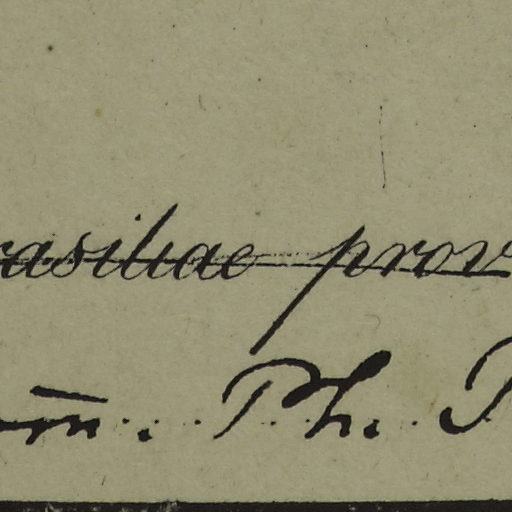 rasiliae prov
om̄. Ph.